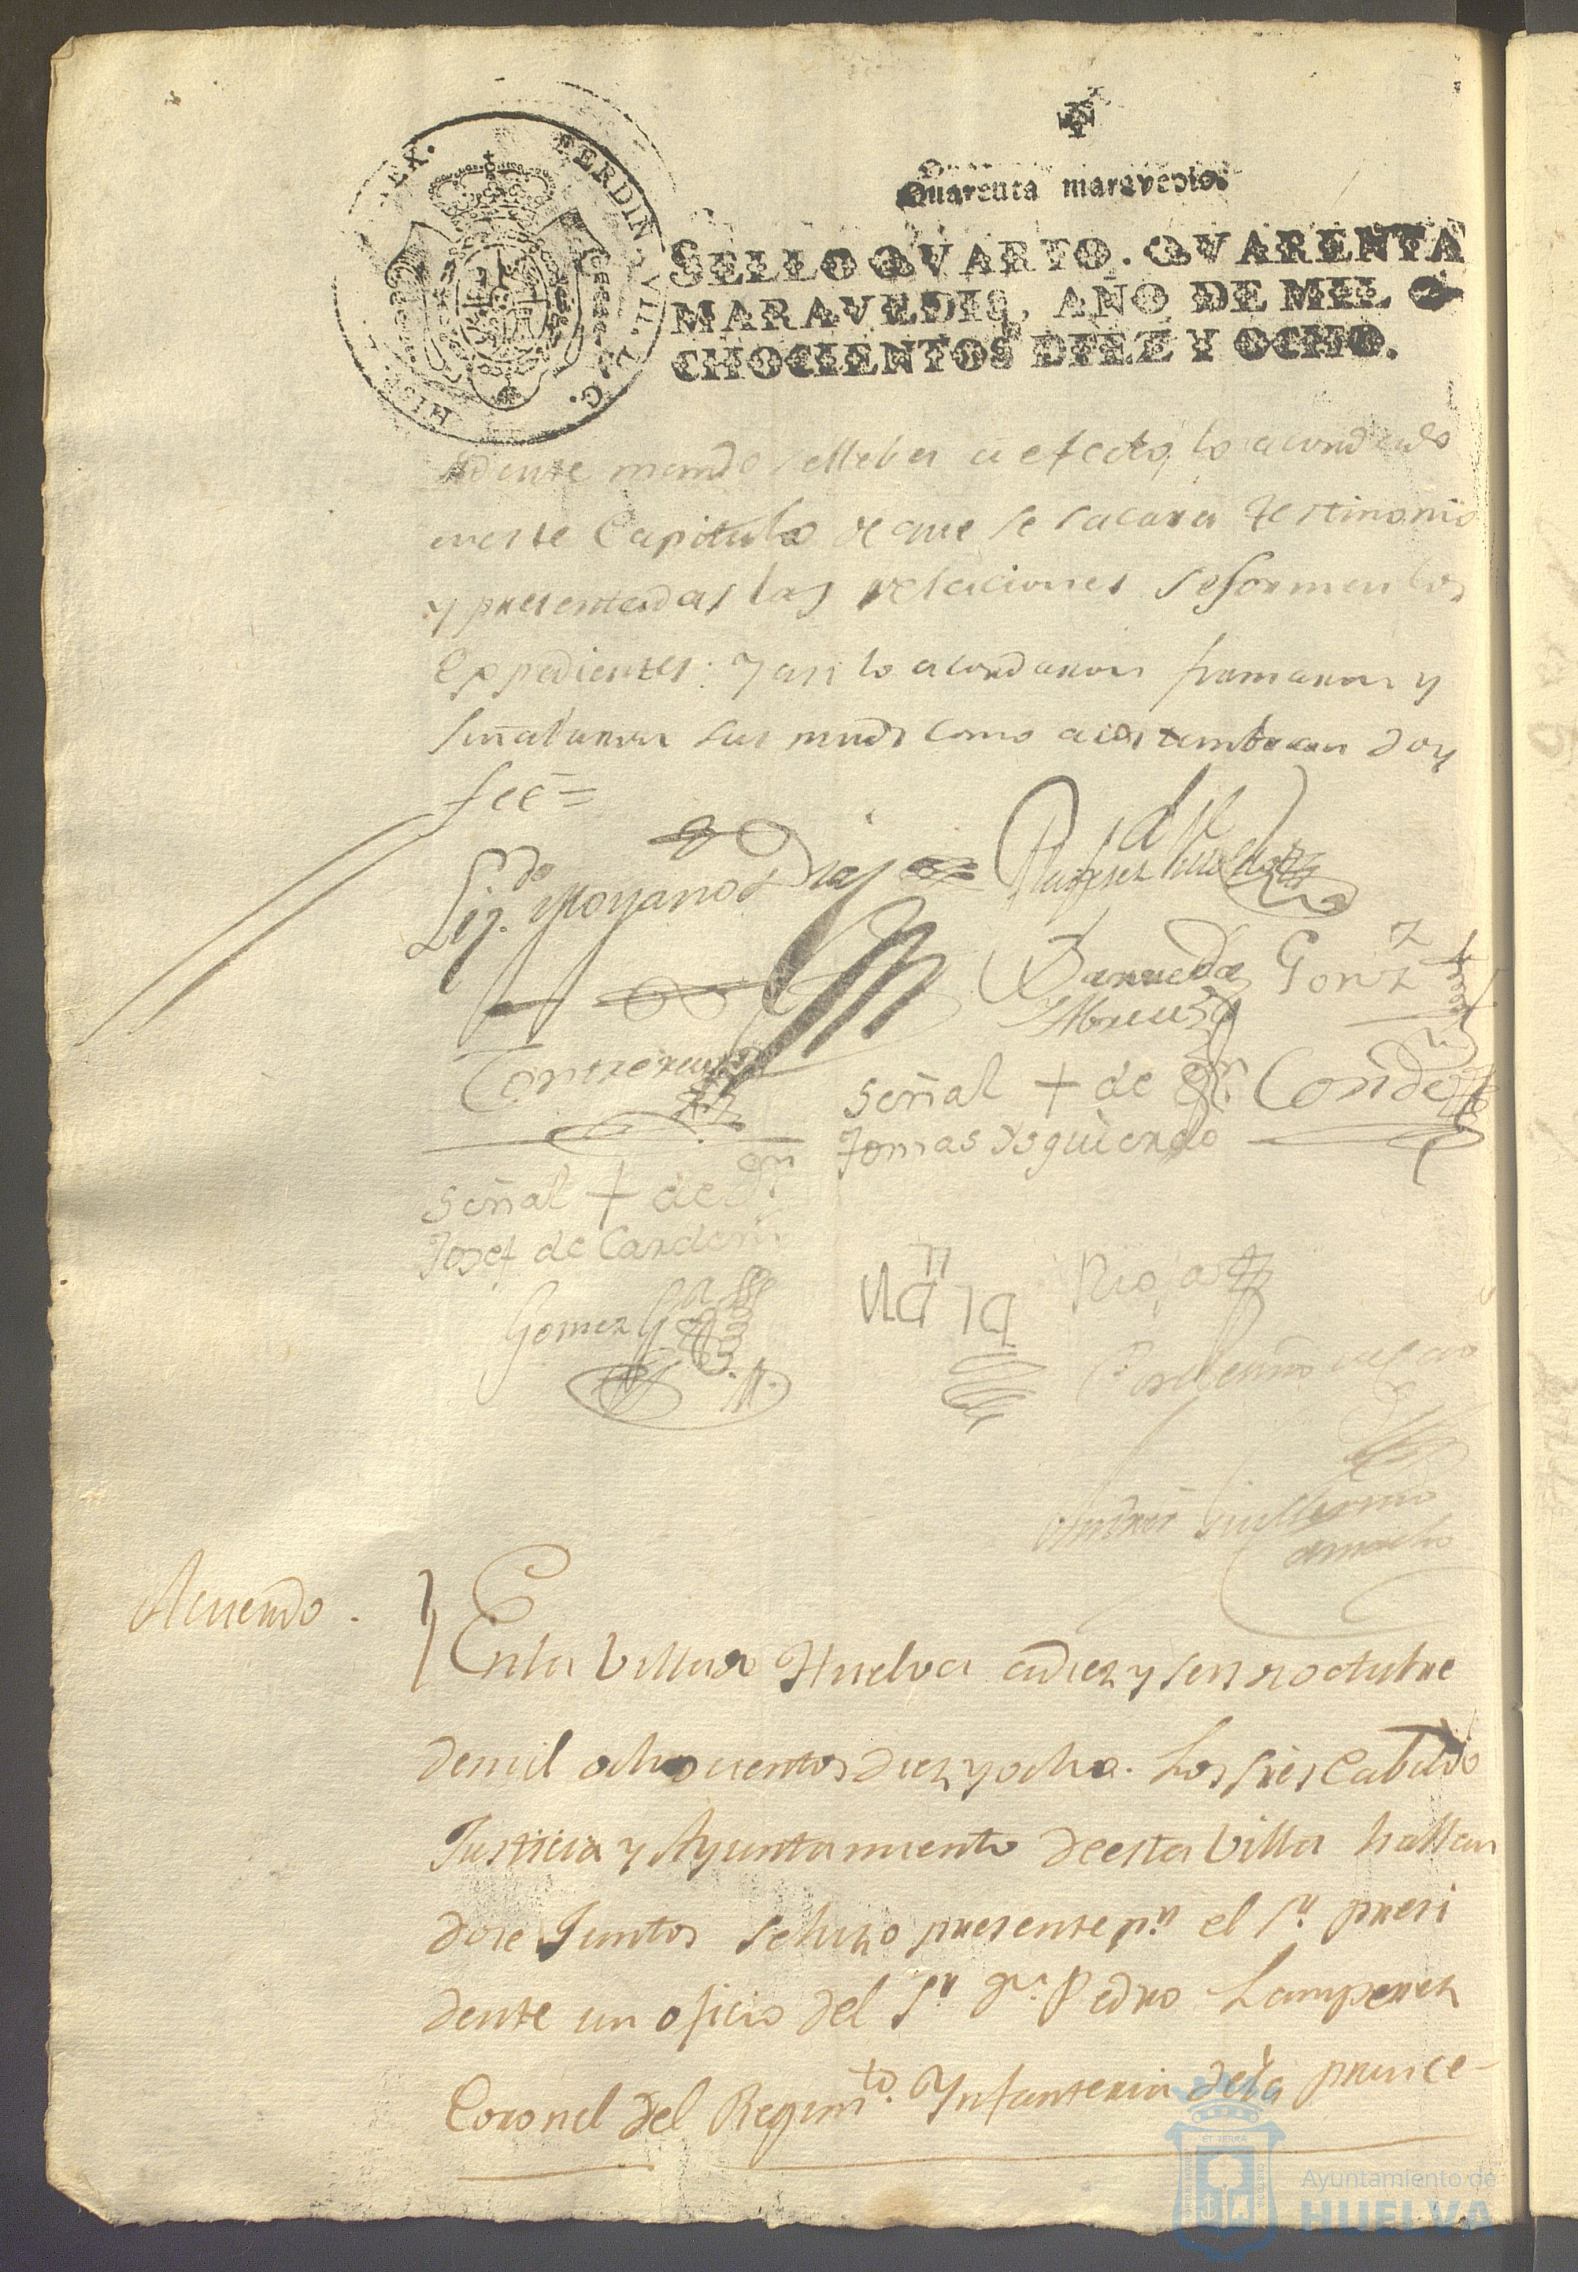 Quarenta maravedis.
SELLO QVARTO. QVARENTA
MARAVEDIS, AÑO DE MIL O
CHOCIENTOS DIEZ Y OCHO.
FERDIN. VII. D. G.
HISP. REX.
idente mando se lleber a efecto, lo acordado
en este Capitulo de que se sacara testimonio
y presentadas las relaciones se formen los
Expedientes: y asi lo acordaron firmaron y
señalaron sus mrds como acostumbran doy
feé=
Liz.do Moyano Diaz
Barreda Gonz.z
Contreras
Señal + de Conde
Tomas Ysquierdo
Señal + de
Josef de Carden
Gomez
Rioja
Acuerdo.
En la Villa de Huelva a diez y seis de octubre
de mil ochocientos diez y ocho. Los sres Cabildo
Justicia y Ayuntamiento de esta Villa hallan
dose Juntos se hizo presente p.r el s.r presi
dente un oficio del S.r Dn. Pedro Lamperez
Coronel del Regim.to Ynfanteria de la prince-
Ayuntamiento de
HUELVA